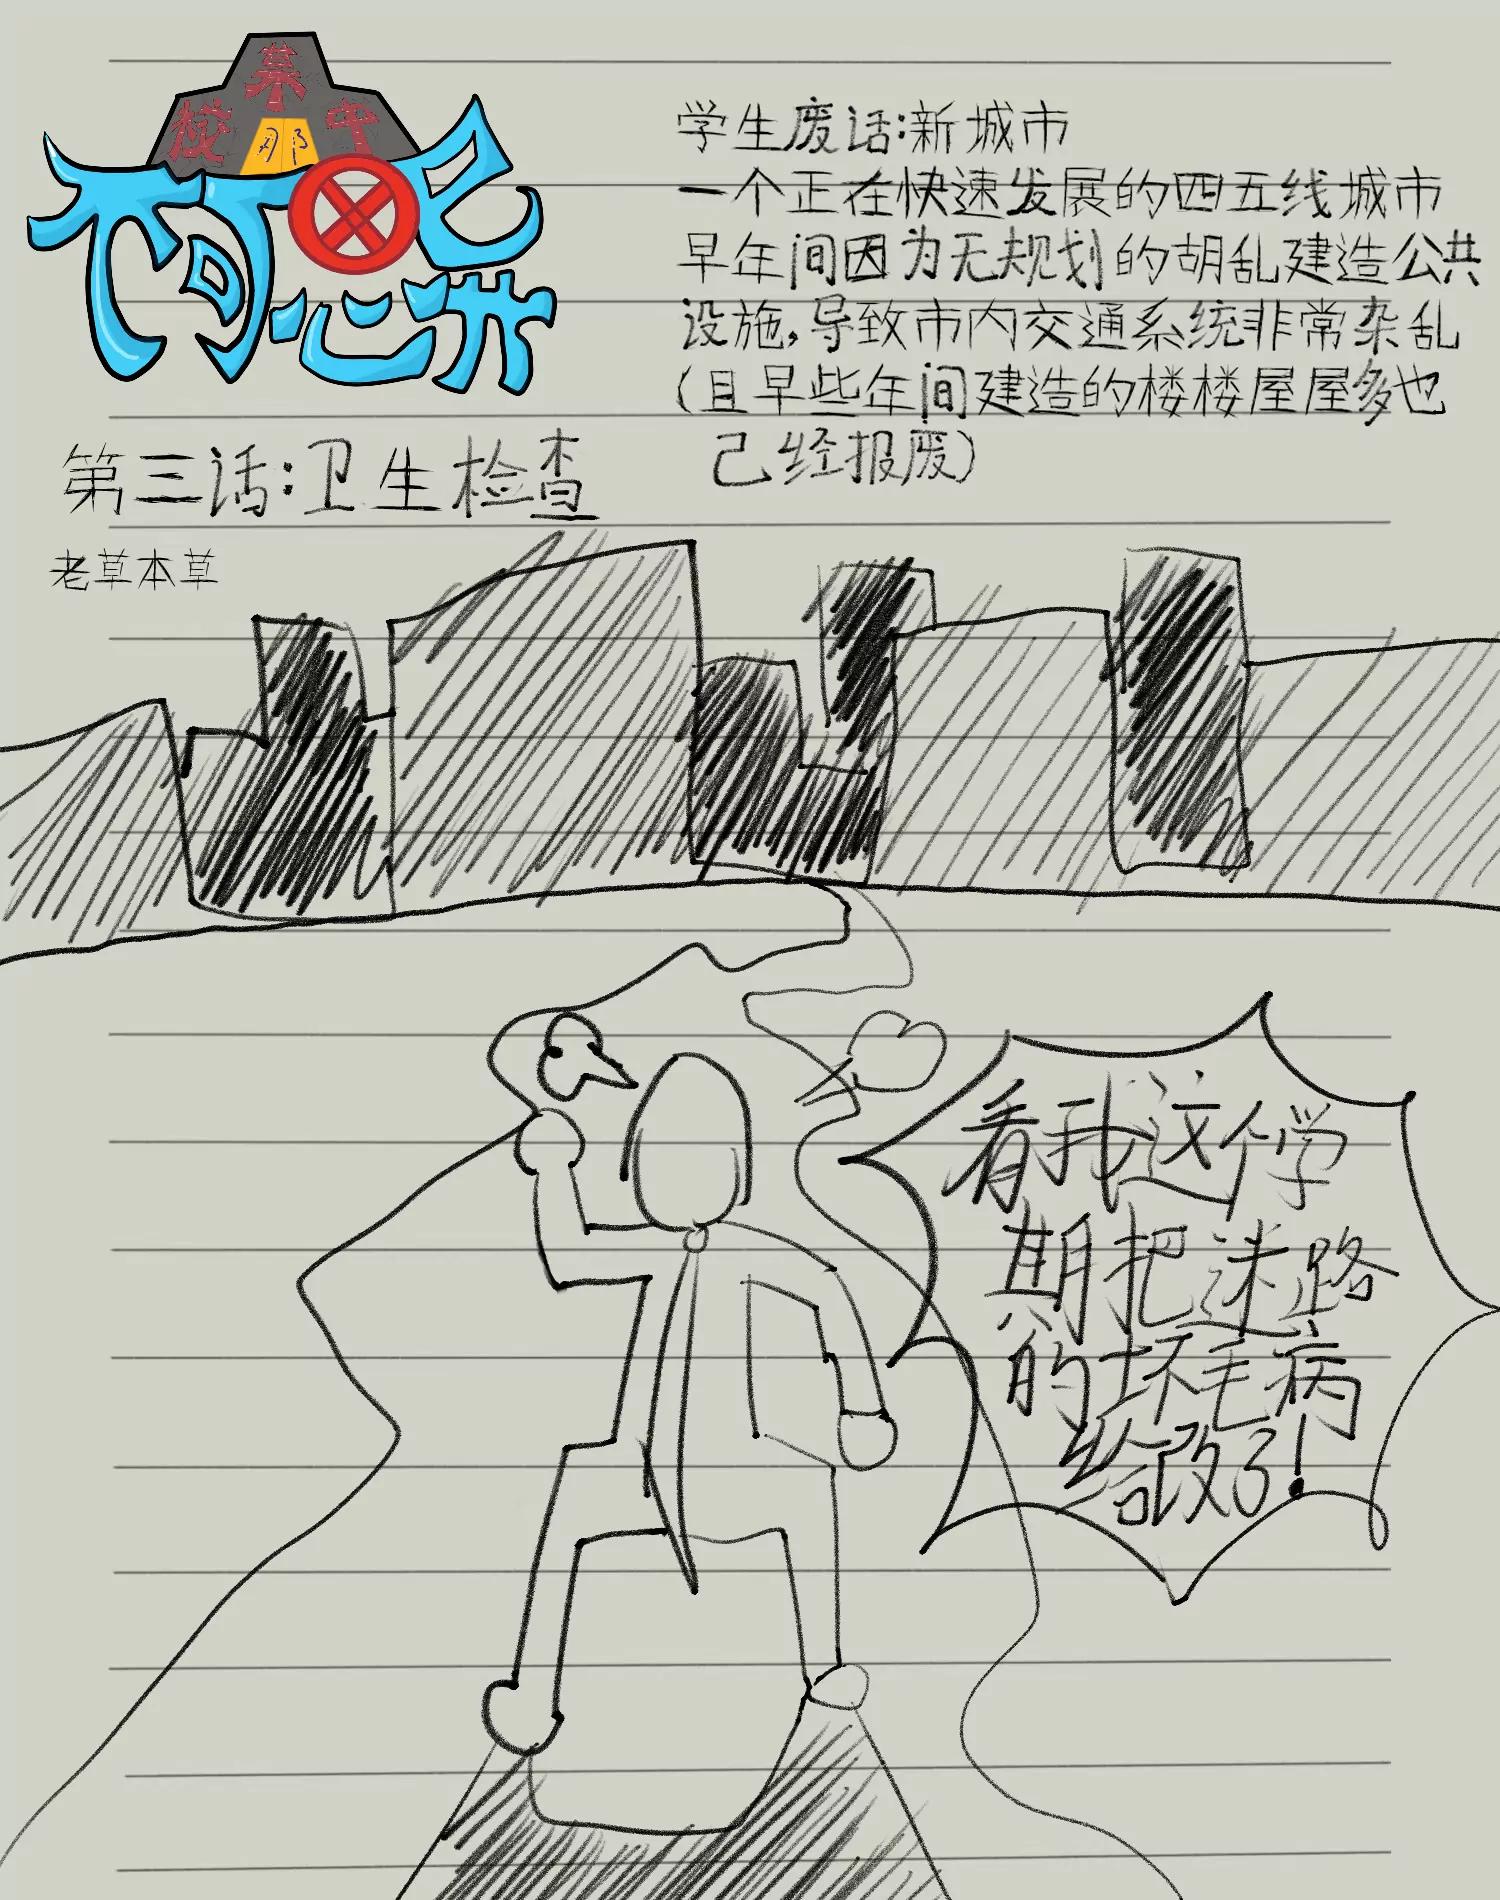 某
校 中
那
不可思异
学生废话:新城市
一个正在快速发展的四五线城市
早年间因为无规划的胡乱建造公共
设施,导致市内交通系统非常杂乱
(且早些年间建造的楼楼屋屋多也
己经报废)
第三话:卫生检查
老草本草
看我这个学
期把迷路
的坏毛病
给改了!